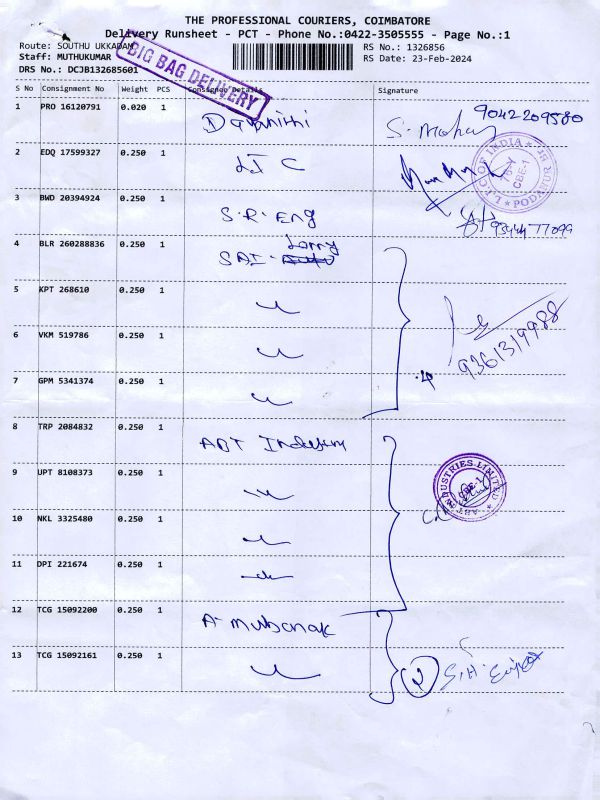 THE PROFESSIONAL COURIERS, COIMBATORE
Delivery Runsheet - PCT - Phone No.:0422-3505555 - Page No.:1
Route: SOUTHU UKKADAM
Staff: MUTHUKUMAR
DRS No.: DCJB132685601
BIG BAG DELIVERY
RS No.: 1326856
RS Date: 23-Feb-2024
S No Consignment No Weight PCS Consignee Details Signature
1 PRO 16120791 0.020 1 9042209580
2 EDQ 17599327 0.250 1 LIC
L.I.C OF INDIA CBE-1 PODANUR
3 BWD 20394924 0.250 1 S.R. Eng 9344477099
4 BLR 260288836 0.250 1 SAI Lorry
5 KPT 268610 0.250 1
6 VKM 519786 0.250 1 9361319988
7 GPM 5341374 0.250 1
8 TRP 2084832 0.250 1 ABT
9 UPT 8108373 0.250 1
ABT INDUSTRIES LIMITED CBE-1
10 NKL 3325480 0.250 1
11 DPI 221674 0.250 1
12 TCG 15092200 0.250 1 A. mubarak
13 TCG 15092161 0.250 1 2